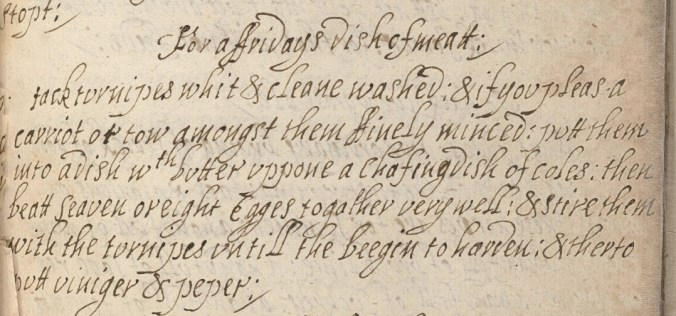 stopt:
For a ffridays dish of meatt:
tack turnipes whit & cleane washed: & if you pleas a
carriot or tow amongst them ffinely minced: putt them
into a dish wth butter uppone a chafing dish of coles: then
beatt seaven or eight Egges togather very well: & stire them
with the turnipes untill the beegin to harden: & therto
putt viniger & peper: